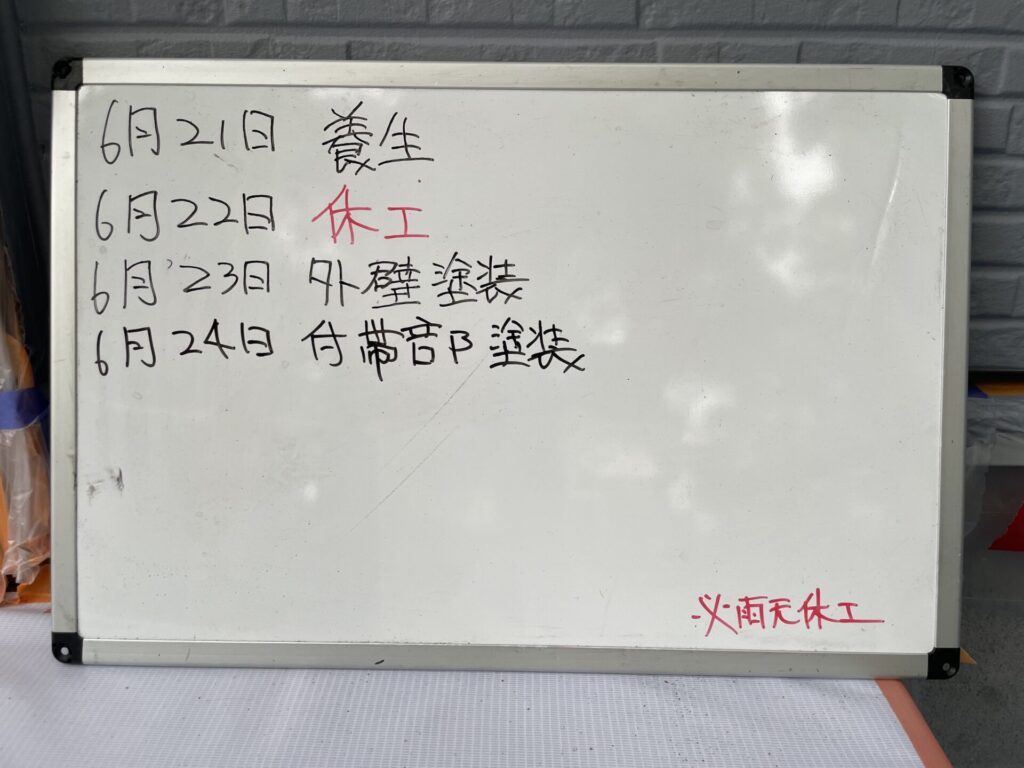 6月21日 養生
6月22日 休工
6月23日 外壁塗装
6月24日 付帯部塗装
※雨天休工